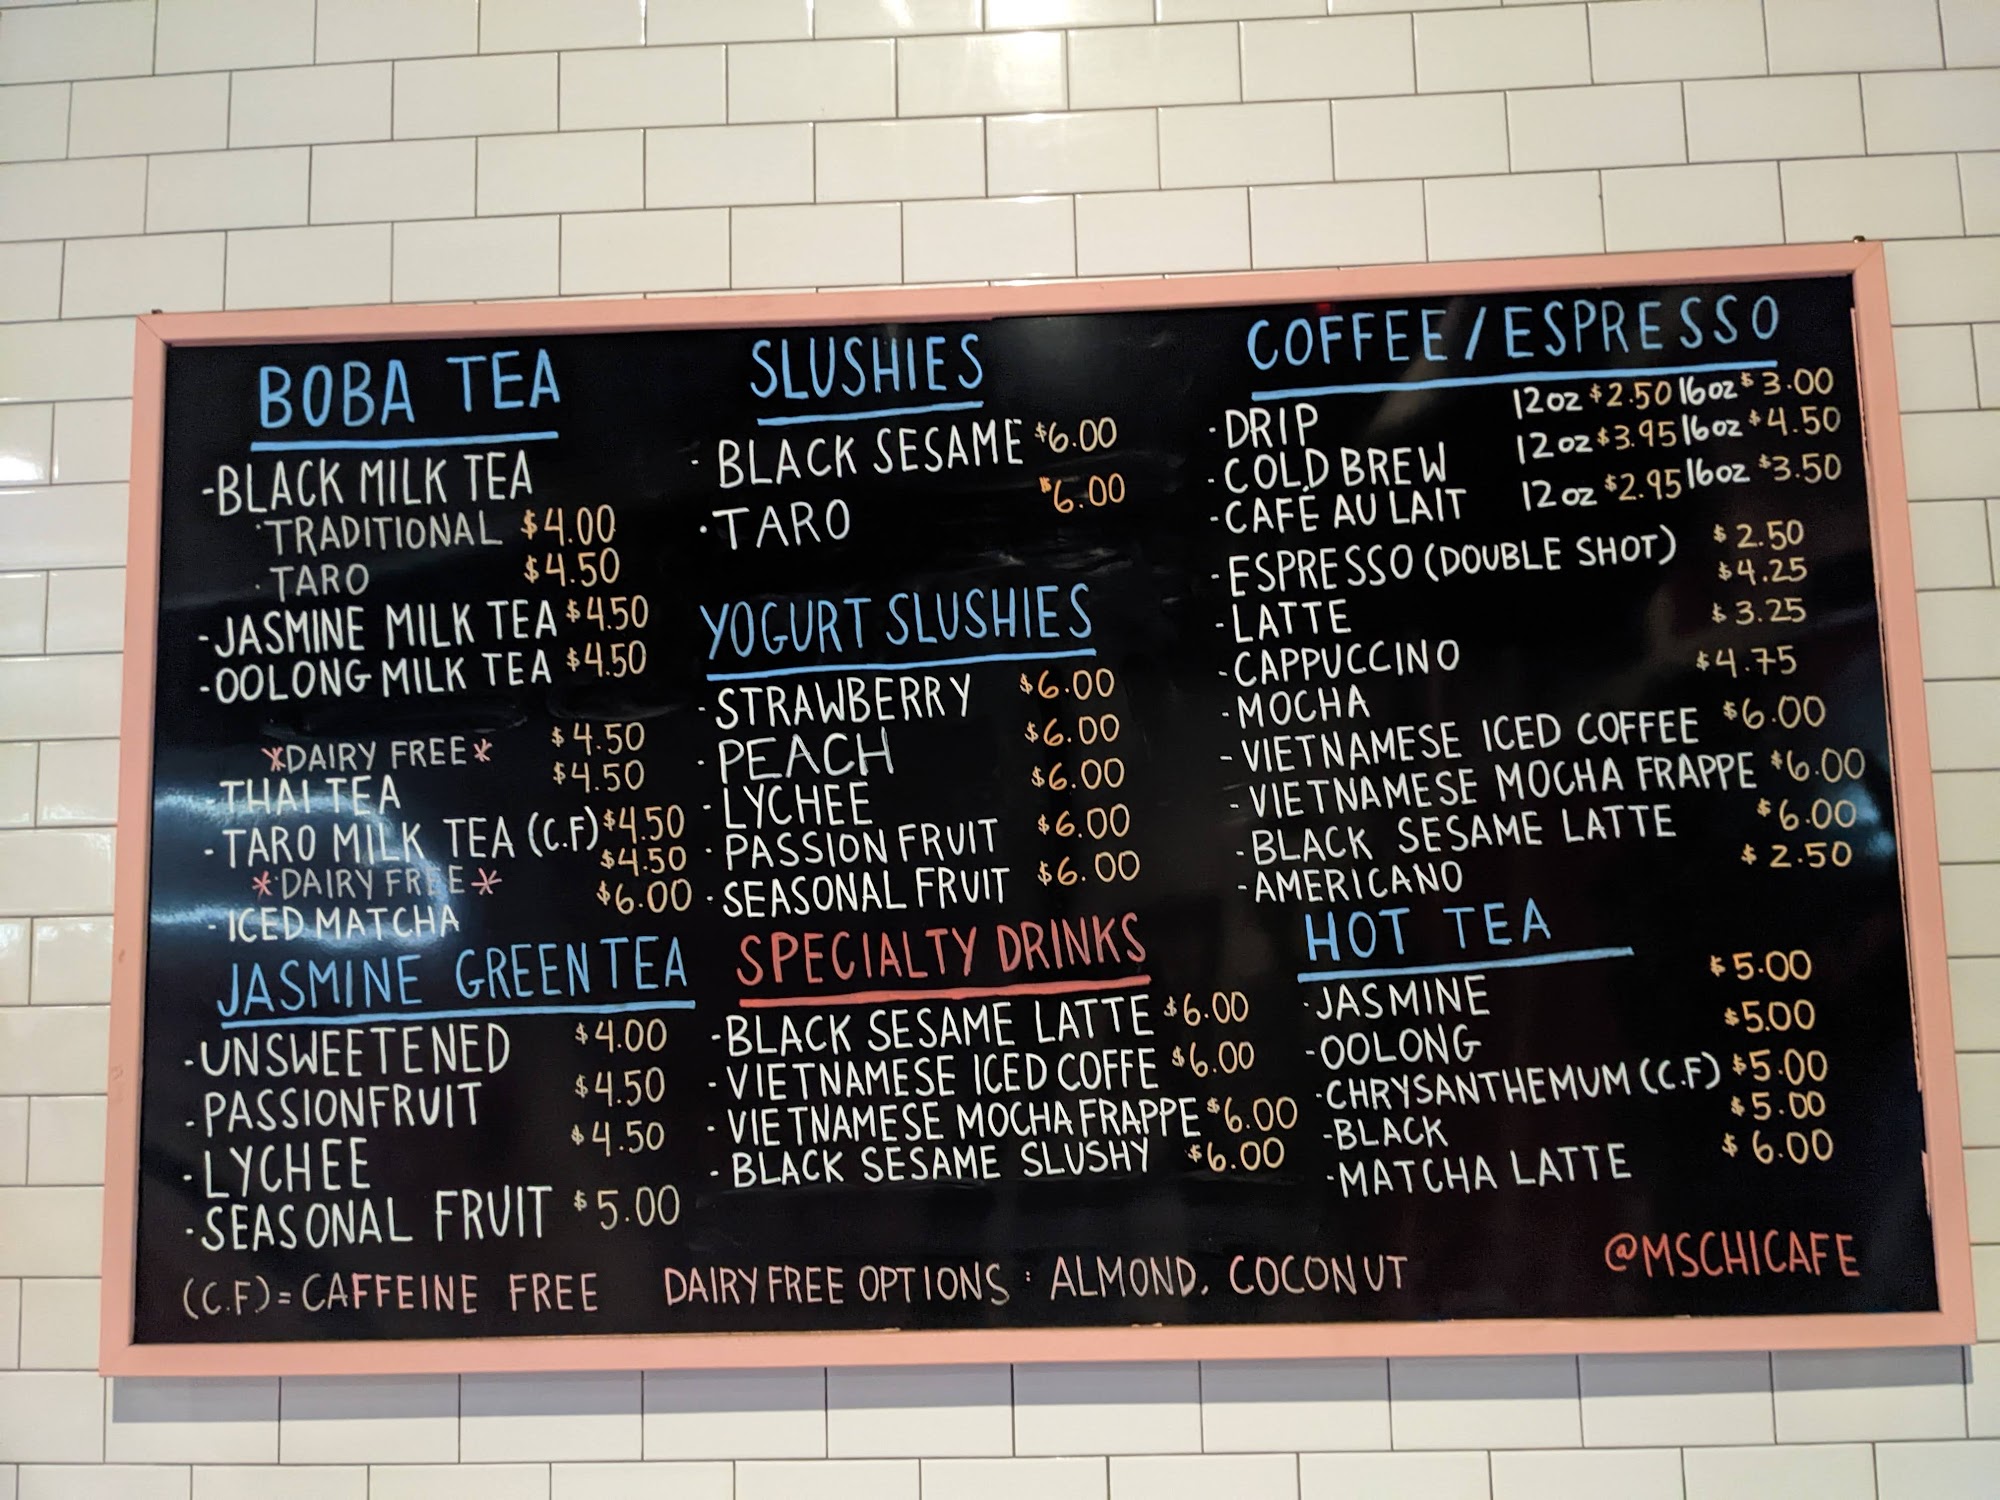 BOBA TEA
-BLACK MILK TEA
·TRADITIONAL $4.00
·TARO $4.50
-JASMINE MILK TEA $4.50
-OOLONG MILK TEA $4.50
*DAIRY FREE* $4.50
-THAI TEA $4.50
-TARO MILK TEA (C.F) $4.50
*DAIRY FREE* $4.50
-ICED MATCHA $6.00
JASMINE GREEN TEA
-UNSWEETENED $4.00
-PASSIONFRUIT $4.50
-LYCHEE $4.50
-SEASONAL FRUIT $5.00
SLUSHIES
-BLACK SESAME $6.00
·TARO $6.00
YOGURT SLUSHIES
-STRAWBERRY $6.00
·PEACH $6.00
-LYCHEE $6.00
·PASSION FRUIT $6.00
·SEASONAL FRUIT $6.00
SPECIALTY DRINKS
-BLACK SESAME LATTE $6.00
-VIETNAMESE ICED COFFE $6.00
-VIETNAMESE MOCHA FRAPPE $6.00
-BLACK SESAME SLUSHY $6.00
COFFEE/ESPRESSO
·DRIP 12oz $2.50 16oz $3.00
·COLD BREW 12oz $3.95 16oz $4.50
-CAFÉ AU LAIT 12oz $2.95 16oz $3.50
-ESPRESSO (DOUBLE SHOT) $2.50
-LATTE $4.25
-CAPPUCCINO $3.25
-MOCHA $4.75
-VIETNAMESE ICED COFFEE $6.00
-VIETNAMESE MOCHA FRAPPE $6.00
-BLACK SESAME LATTE $6.00
-AMERICANO $2.50
HOT TEA
·JASMINE $5.00
-OOLONG $5.00
·CHRYSANTHEMUM (C.F) $5.00
-BLACK $5.00
-MATCHA LATTE $6.00
(C.F)=CAFFEINE FREE DAIRY FREE OPTIONS: ALMOND, COCONUT
@MSCHICAFE